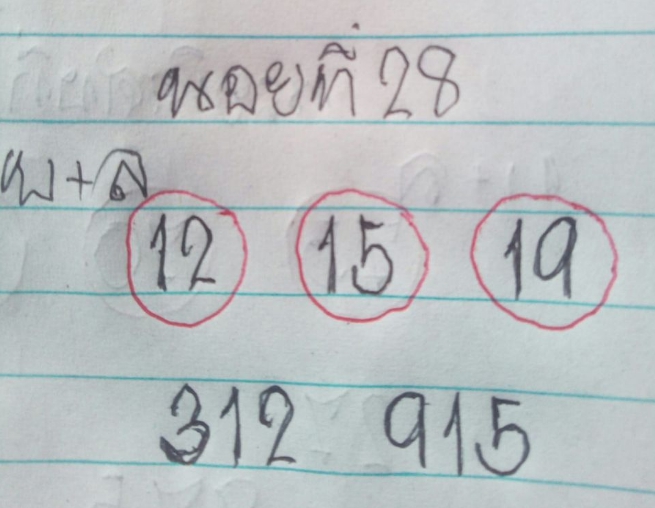 หอยที่ 28
บ+ล
12 15 19
312 915